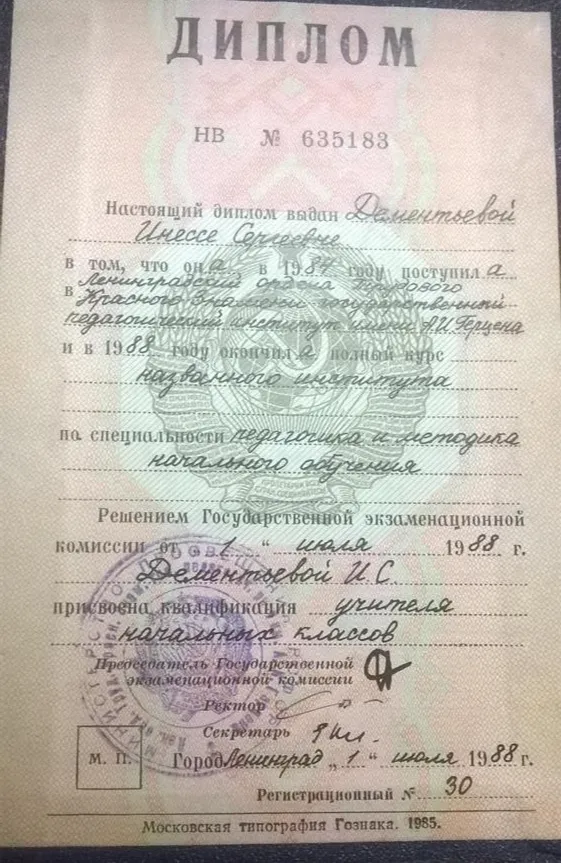 ДИПЛОМ
НВ № 635183
Настоящий диплом выдан Дементьевой
Инессе Сергеевне
в том, что она в 1984 году поступила
в Ленинградский ордена Трудового
Красного Знамени государственный
педагогический институт имени А.И. Герцена
и в 1988 году окончила полный курс
названного института
по специальности педагогика и методика
начального обучения
Решением Государственной экзаменационной
комиссии от „ 1 “ июля 1988 г.
Дементьевой И.С.
присвоена квалификация учителя
начальных классов
Председатель Государственной
экзаменационной комиссии
Ректор
Секретарь
М. П.
Город Ленинград „ 1 “ июля 1988 г.
Регистрационный № 30
Московская типография Гознака. 1985.